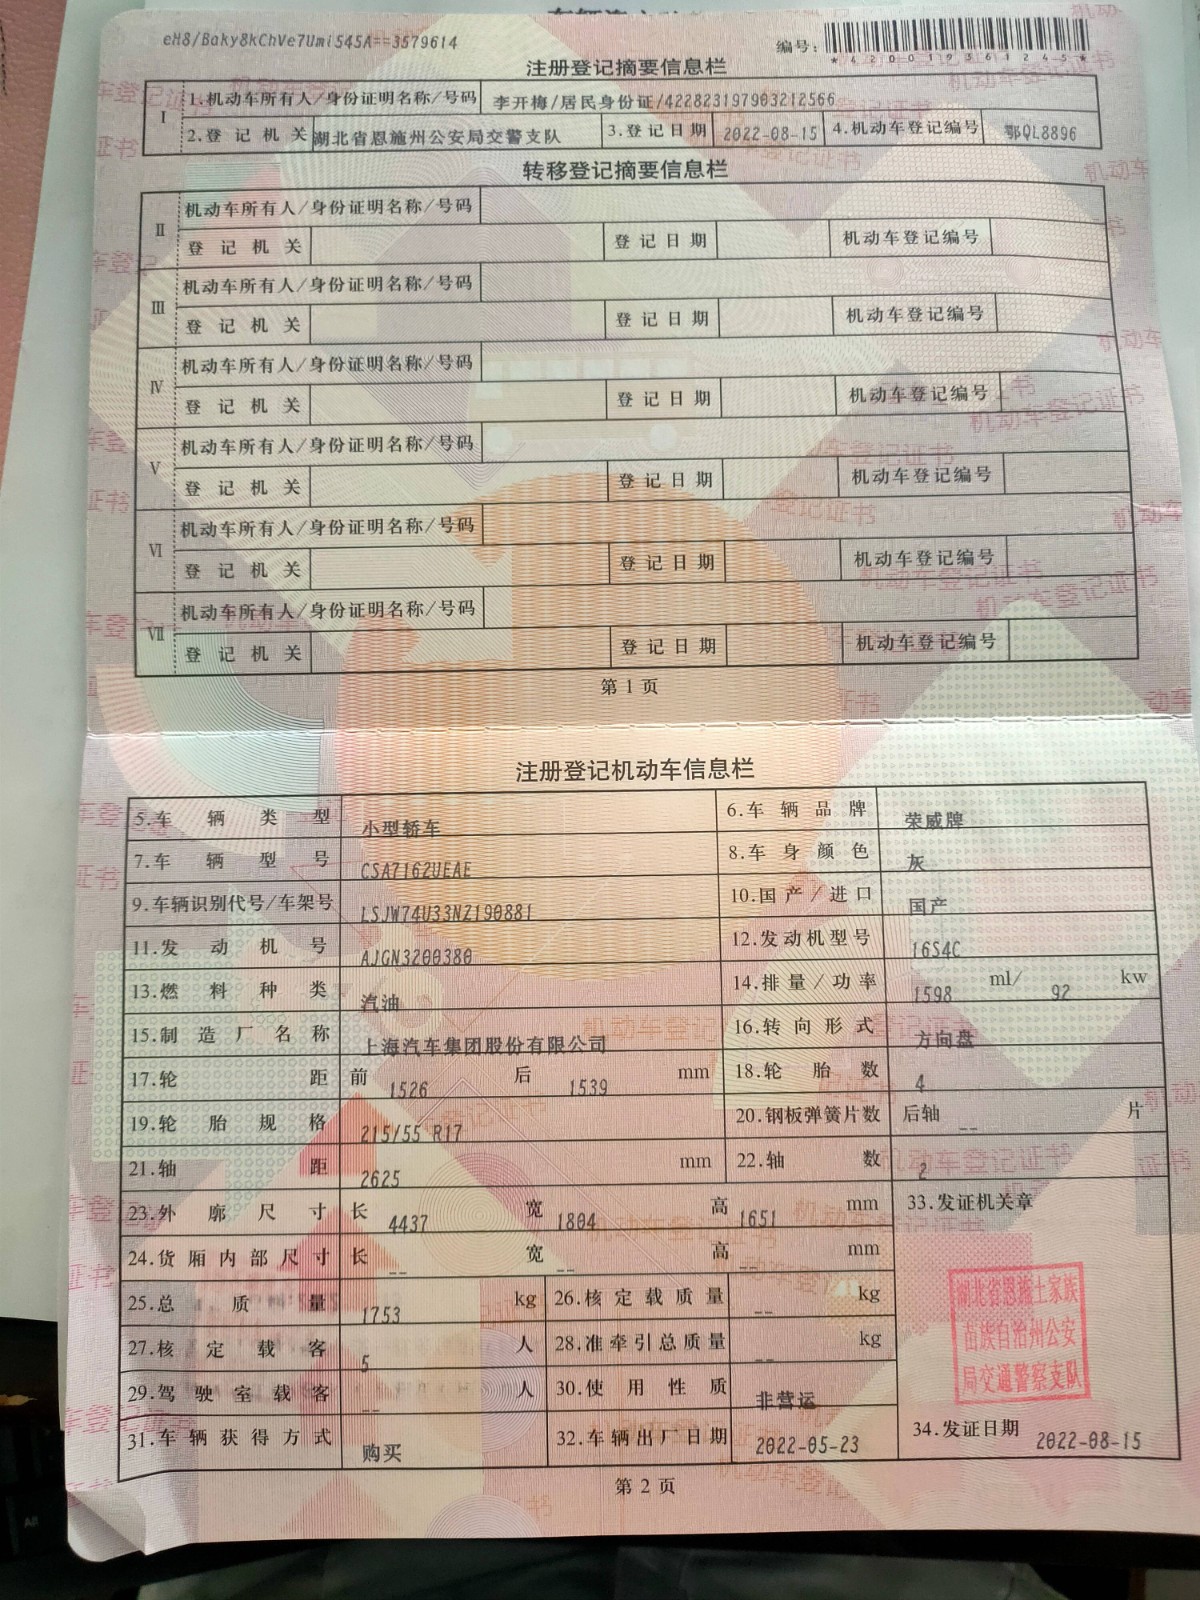 eH8/Baky8kChVe7Umi545A==3579614
编号:
*420019361245*
注册登记摘要信息栏
I
1.机动车所有人/身份证明名称/号码 李开梅/居民身份证/422823197903212566
2.登记机关 湖北省恩施州公安局交警支队 3.登记日期 2022-08-15 4.机动车登记编号 鄂QL8896
转移登记摘要信息栏
II
机动车所有人/身份证明名称/号码
登记机关 登记日期 机动车登记编号
III
机动车所有人/身份证明名称/号码
登记机关 登记日期 机动车登记编号
IV
机动车所有人/身份证明名称/号码
登记机关 登记日期 机动车登记编号
V
机动车所有人/身份证明名称/号码
登记机关 登记日期 机动车登记编号
VI
机动车所有人/身份证明名称/号码
登记机关 登记日期 机动车登记编号
VII
机动车所有人/身份证明名称/号码
登记机关 登记日期 机动车登记编号
第1页
注册登记机动车信息栏
5.车辆类型 小型轿车 6.车辆品牌 荣威牌
7.车辆型号 CSA7162UEAE 8.车身颜色 灰
9.车辆识别代号/车架号 LSJW74U33NZ190881 10.国产/进口 国产
11.发动机号 AJGN3200380 12.发动机型号 16S4C
13.燃料种类 汽油 14.排量/功率 1598 ml/ 92 kw
15.制造厂名称 上海汽车集团股份有限公司 16.转向形式 方向盘
17.轮距 前 1526 后 1539 mm 18.轮胎数 4
19.轮胎规格 215/55 R17 20.钢板弹簧片数 后轴 -- 片
21.轴距 2625 mm 22.轴数 2
23.外廓尺寸 长 4437 宽 1804 高 1651 mm 33.发证机关章
24.货厢内部尺寸 长 -- 宽 -- 高 -- mm
25.总质量 1753 kg 26.核定载质量 -- kg
湖北省恩施土家族
苗族自治州公安
局交通警察支队
27.核定载客 5 人 28.准牵引总质量 -- kg
29.驾驶室载客 -- 人 30.使用性质 非营运
31.车辆获得方式 购买 32.车辆出厂日期 2022-05-23 34.发证日期 2022-08-15
第2页